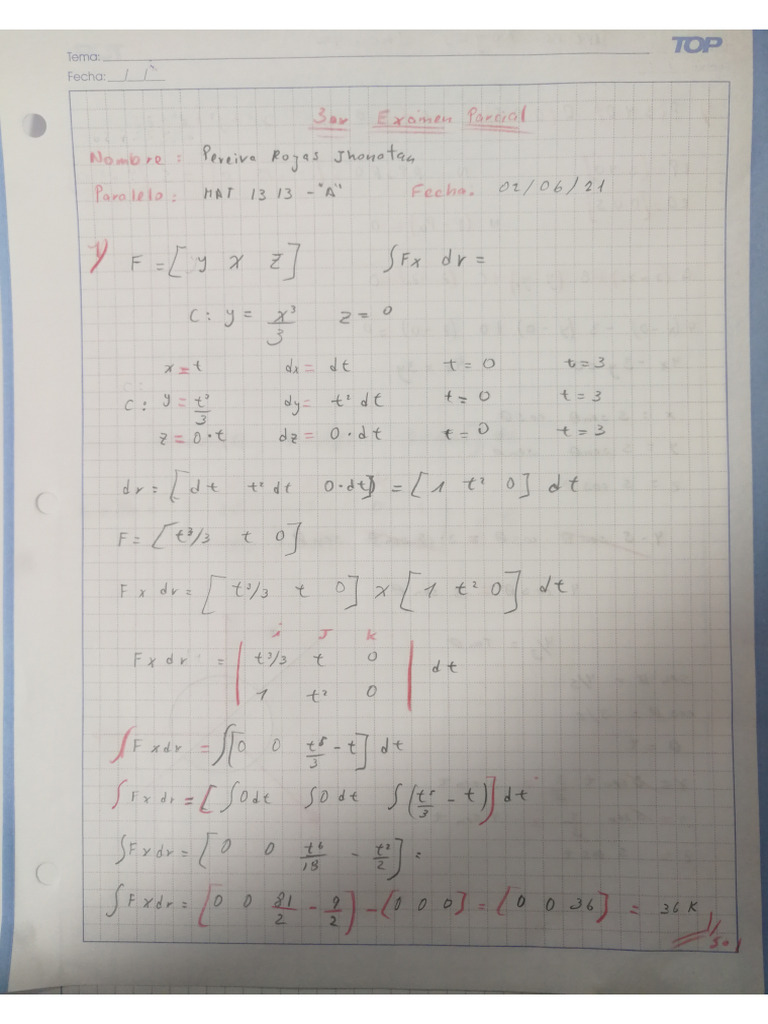 TOP
Tema:
Fecha: / /
3er Examen Parcial
Nombre: Pereira Rojas Jhonatan
Paralelo: MAT 1313 - "A" Fecha. 02/06/21
1) F = [ y x z ] ∫Fx dr =
C: y = x³/3 z = 0
x = t dx = dt t = 0 t = 3
C: y = t³/3 dy = t² dt t = 0 t = 3
z = 0·t dz = 0·dt t = 0 t = 3
dr = [dt t² dt 0·dt] = [1 t² 0] dt
F = [t³/3 t 0]
F x dr = [t³/3 t 0] x [1 t² 0] dt
i J K
F x dr = | t³/3 t 0 | dt
1 t² 0
∫F x dr = ∫[0 0 t⁵/3 - t] dt
∫F x dr = [∫0dt ∫0 dt ∫(t⁵/3 - t)] dt
∫F x dr = [0 0 t⁶/18 - t²/2] =
∫F x dr = [0 0 81/2 - 9/2] - [0 0 0] = [0 0 36] = 36 K